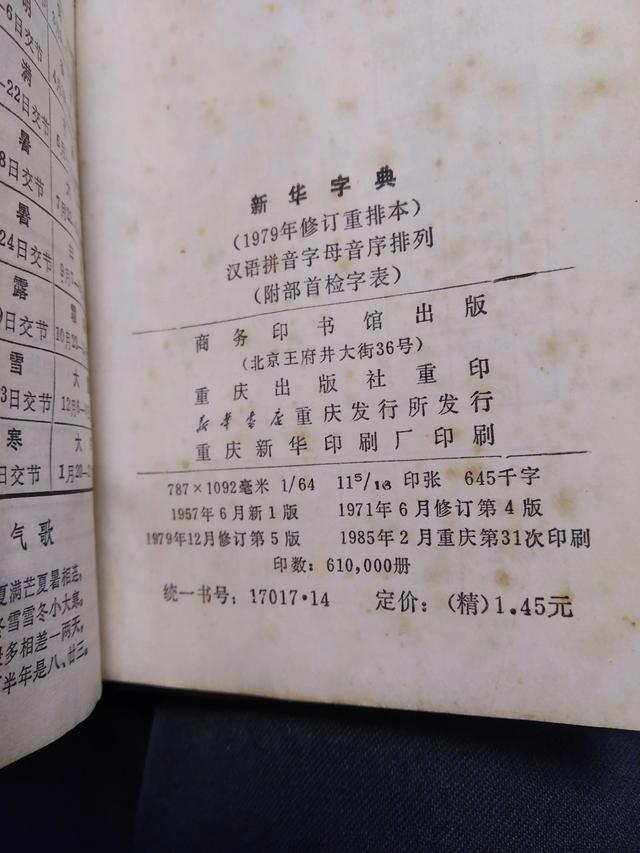 明
6日交节
满
22日交节
暑
8日交节
暑
24日交节
露
9日交节
雪
3日交节
寒
日交节
大
7月
9月7
10月23
大
12月6
大
1月20
气歌
夏满芒夏暑相连,
冬雪雪冬小大寒。
多相差一两天,
半年是八、廿三。
新华字典
(1979年修订重排本)
汉语拼音字母音序排列
(附部首检字表)
商务印书馆出版
(北京王府井大街36号)
重庆出版社重印
新华书店重庆发行所发行
重庆新华印刷厂印刷
787×1092毫米 1/64 11⁵/₁₆ 印张 645千字
1957年6月新1版 1971年6月修订第4版
1979年12月修订第5版 1985年2月重庆第31次印刷
印数:610,000册
统一书号:17017·14 定价:(精)1.45元